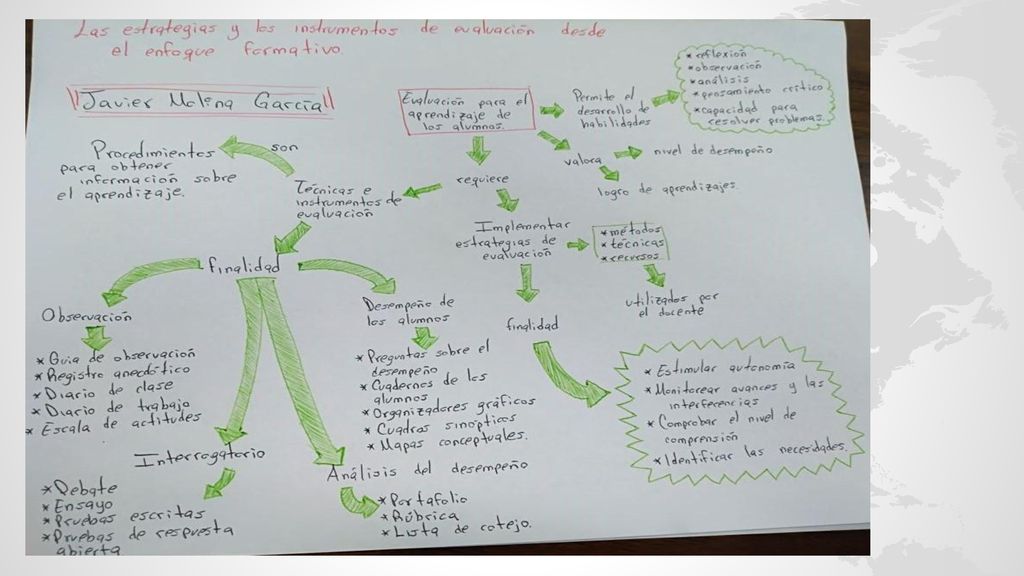 Las estrategias y los instrumentos de evaluación desde
el enfoque formativo.
Javier Molina García
Evaluación para el
aprendizaje de
los alumnos.
Permite el
desarrollo de
habilidades
* reflexión
* observación
* análisis
* pensamiento crítico
* capacidad para
resolver problemas.
valora
nivel de desempeño
logro de aprendizajes.
requiere
Técnicas e
instrumentos de
evaluación
son
Procedimientos
para obtener
información sobre
el aprendizaje.
Implementar
estrategias de
evaluación
* métodos
* técnicas
* recursos
utilizados por
el docente
finalidad
* Estimular autonomía
* Monitorear avances y las
interferencias
* Comprobar el nivel de
comprensión
* Identificar las necesidades.
finalidad
Observación
* Guia de observación
* Registro anecdótico
* Diario de clase
* Diario de trabajo
* Escala de actitudes
Desempeño de
los alumnos
* Preguntas sobre el
desempeño
* Cuadernos de los
alumnos
* Organizadores gráficos
* Cuadros sinópticos
* Mapas conceptuales.
Interrogatorio
* Debate
* Ensayo
* Pruebas escritas
* Pruebas de respuesta
abierta
Análisis del desempeño
* Portafolio
* Rúbrica
* Lista de cotejo.